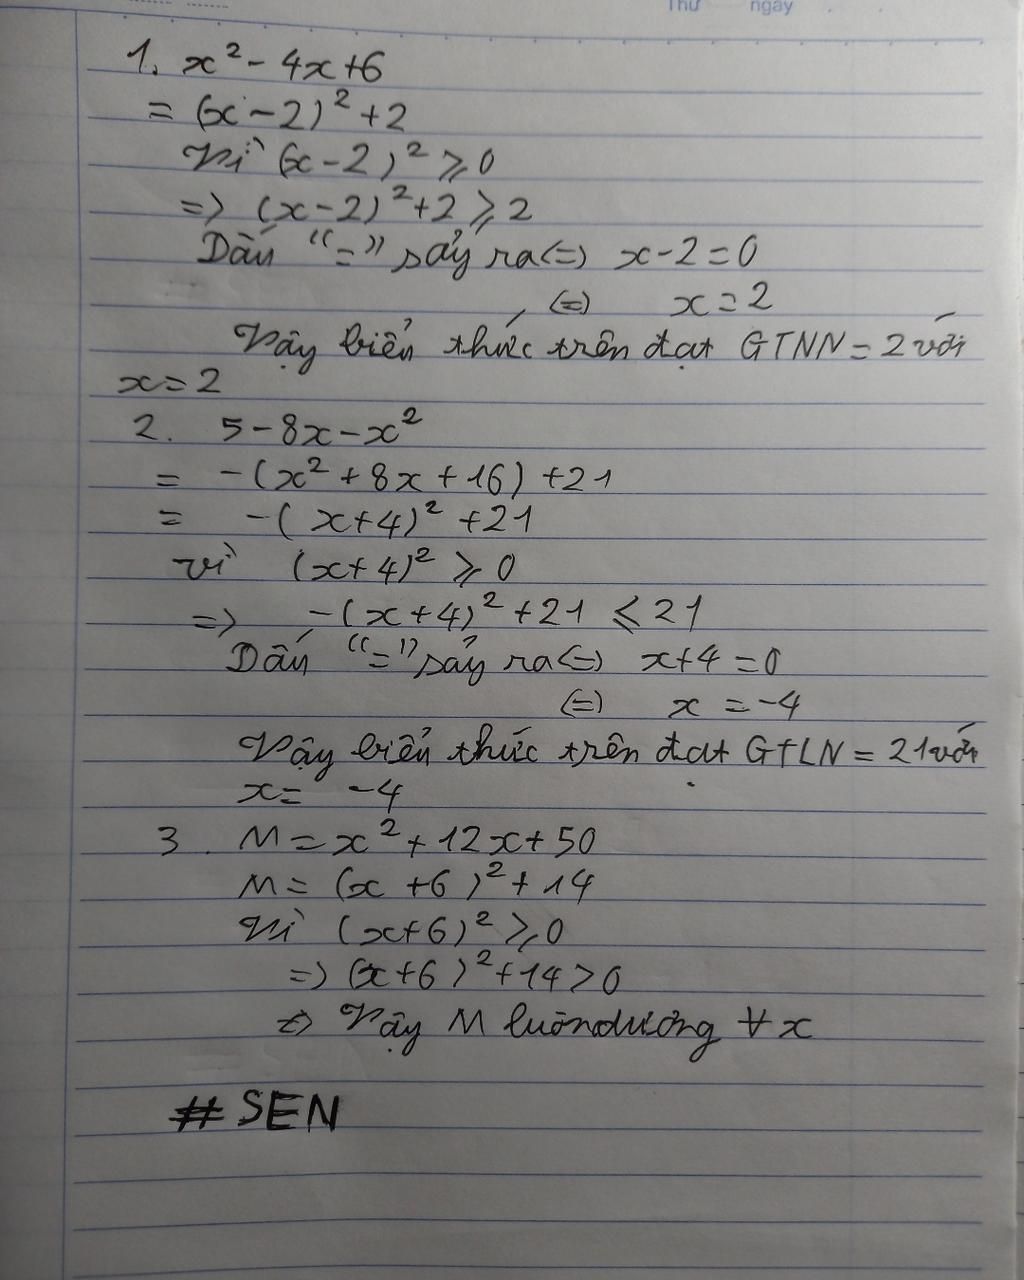 Thứ ngày
1. x² - 4x+6
= (x-2)² +2
Vì (x-2)² ⩾ 0
=> (x-2)²+2 ⩾ 2
Dấu “=” sảy ra <=> x-2=0
<=> x=2
Vậy biểu thức trên đạt GTNN = 2 với
x=2
2. 5-8x-x²
= -(x² + 8x +16) +21
= -(x+4)² +21
vì (x+4)² ⩾ 0
=> -(x+4)² +21 ⩽ 21
Dấu “=” sảy ra <=> x+4 =0
<=> x = -4
Vậy biểu thức trên đạt GTLN = 21 với
x= -4
3. M=x² + 12x+50
M= (x +6)² + 14
Vì (x+6)² ⩾ 0
=> (x+6)² +14>0
=> Vậy M luôn dương ∀ x
# SEN